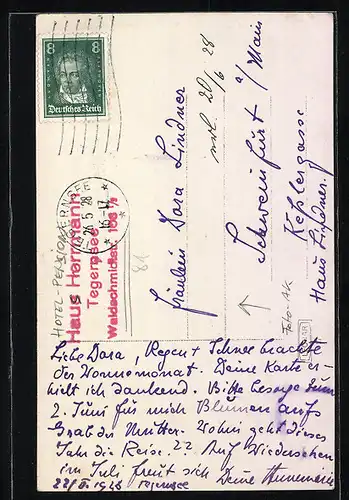 8 8
Deutsches Reich
TEGERNSEE
26.5.28
16-17
HOTEL-PENSION
Haus Herrmann
Tegernsee
Waldschmidtstr. 108 ½
81
Fräulein Dora Lindner
20/6 28
Schweinfurt a/Main
Keßlergasse
Haus Lindner.
Foto-AK
Liebe Dora, Regen + Schnee brachte
der Wonnemonat. Deine Karte er-
hielt ich dankend. Bitte besorge zum
2. Juni für mich Blumen aufs
Grab der Mutter. Wohin geht dieses
Jahr die Reise. ?? Auf Wiedersehen
im Juli freut sich Deine Annemarie
1928 Tegernsee